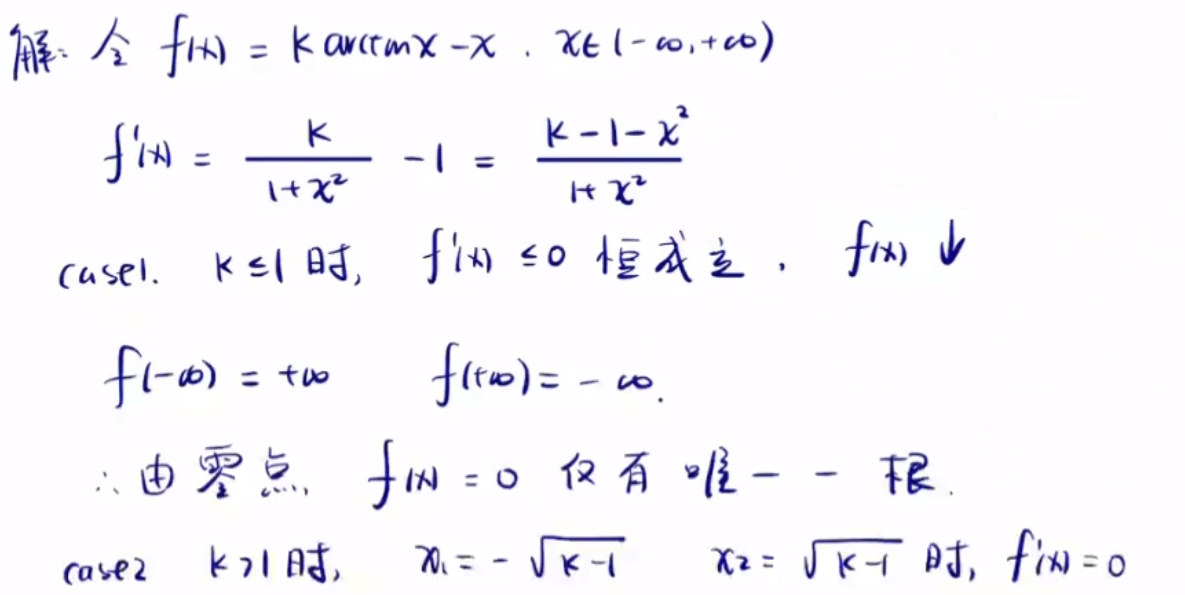 解: 令 f(x) = k arctanx - x . x∈(-∞,+∞)
f'(x) = k/(1+x²) - 1 = (k-1-x²)/(1+x²)
case1. k≤1 时, f'(x) ≤0 恒成立 , f(x) ↓
f(-∞) = +∞ f(+∞) = -∞.
∴由零点, f(x) = 0 仅有唯一一根.
case2 k>1 时, x₁ = -√(k-1) x₂ = √(k-1) 时, f'(x) = 0